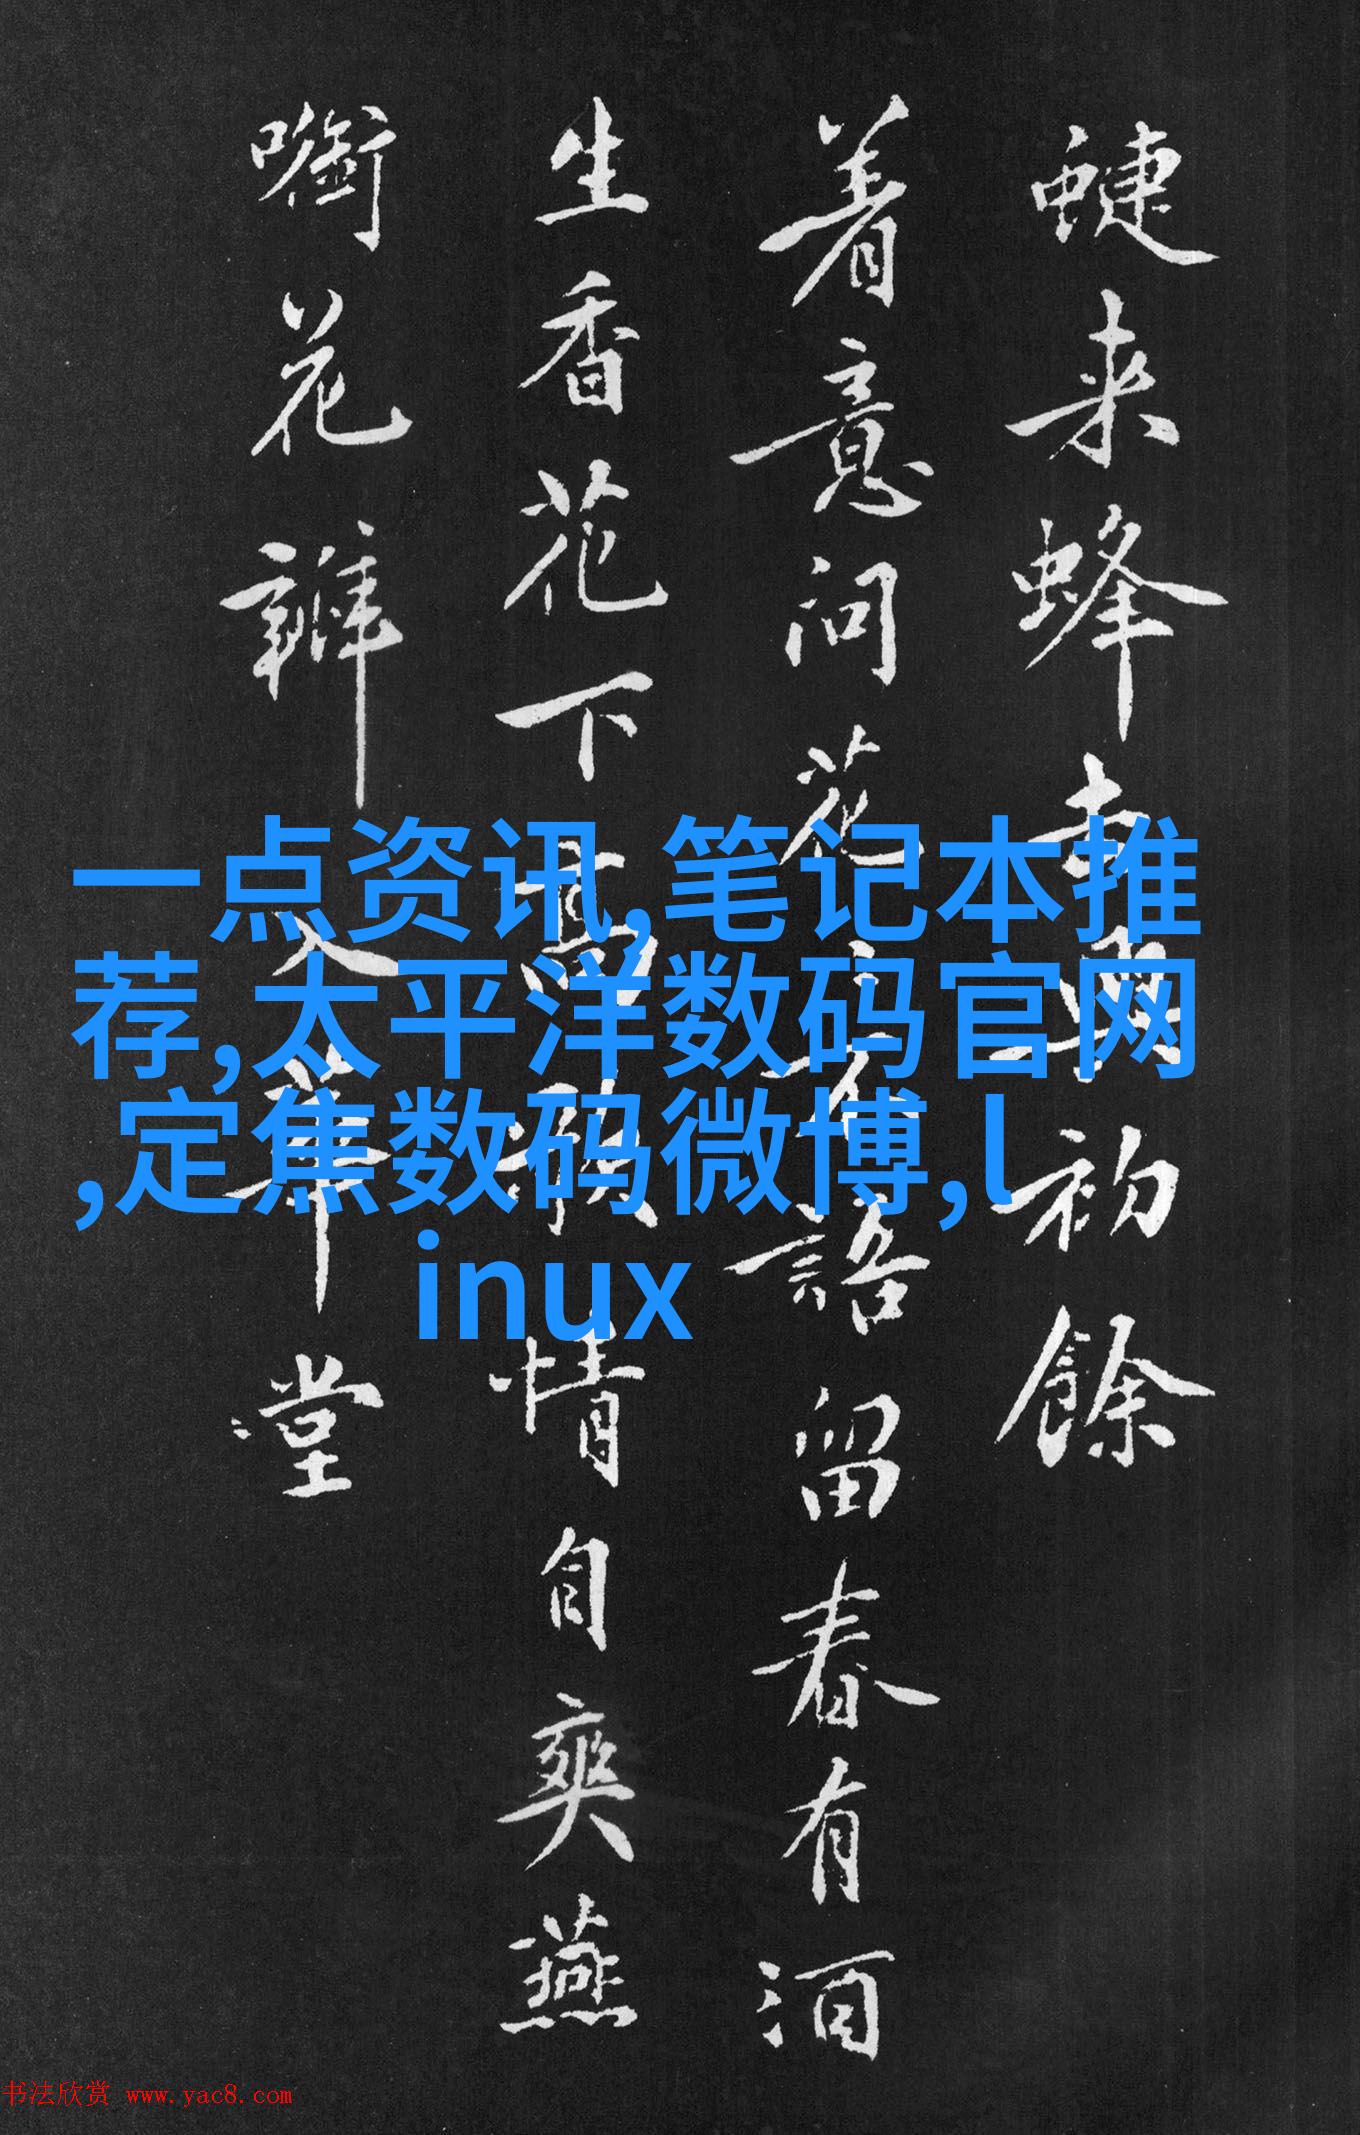 蜨来蜂去興初餘
着意问花不語留春有酒
生香花下高歌情自爽燕
花瓣入華堂
一点资讯,笔记本推
荐,太平洋数码官网
,定焦数码微博,l
inux
书法欣赏 www.yac8.com